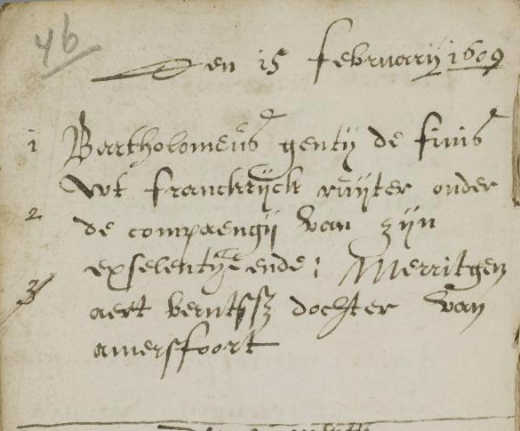 46
Den 15 februarij 1609
1 Bartholomeus gentij de finis
wt franckrijck ruijter onder
2 de compaengij van zijn
exselentije ende: Merritgen
3 aert berntssz dochter van
amersfoort